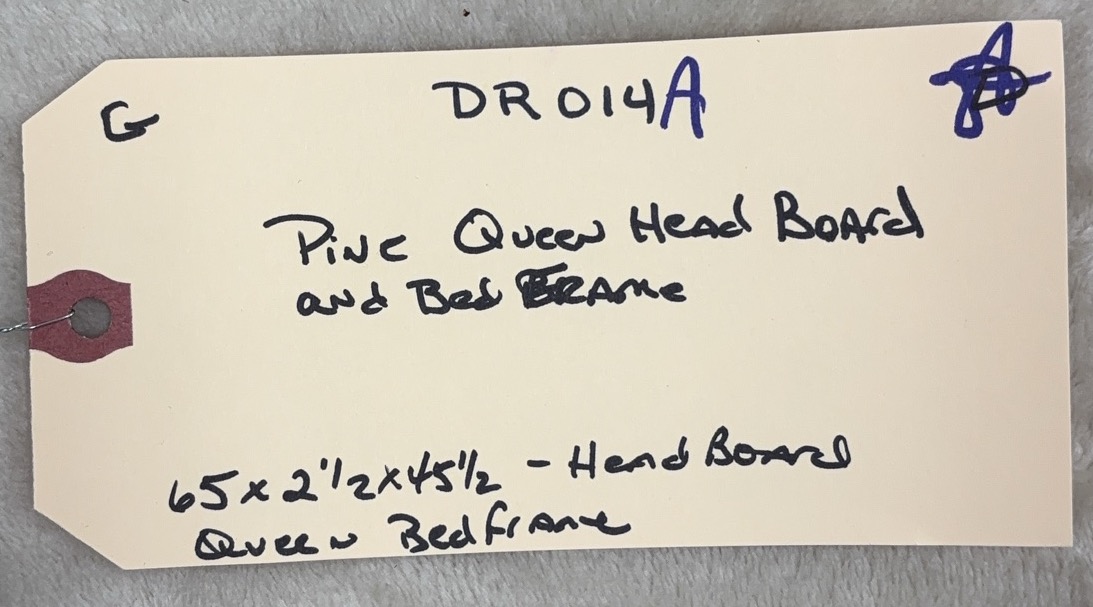 G DR014A
Pine Queen Head Board
and Bed Frame
65 x 2 1/2 x 45 1/2 - Head Board
Queen Bed frame